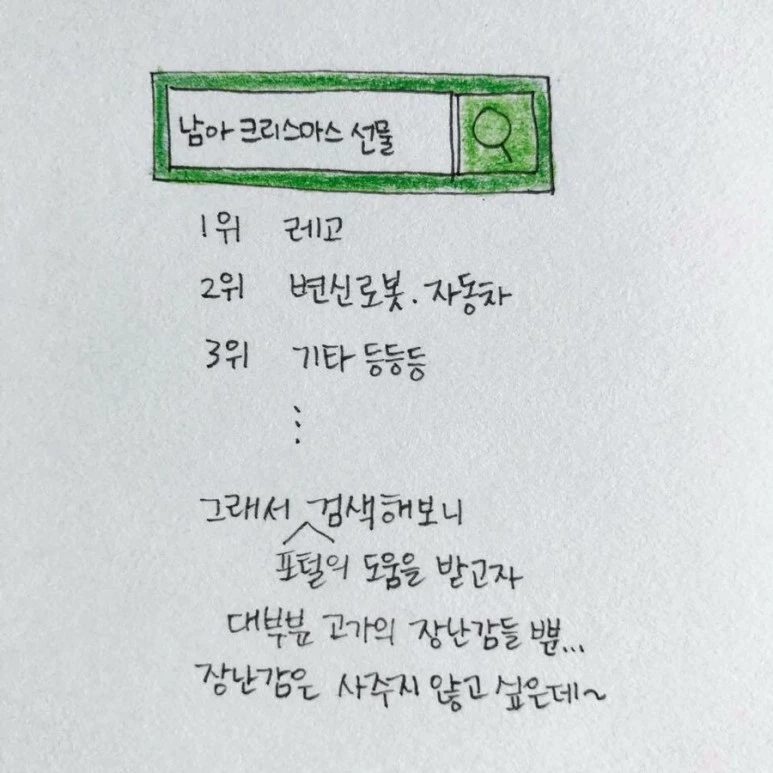 남아 크리스마스 선물
1위 레고
2위 변신로봇. 자동차
3위 기타 등등등
⋮
그래서 검색해보니
포털의 도움을 받고자
대부분 고가의 장난감들 뿐...
장난감은 사주지 않고 싶은데~